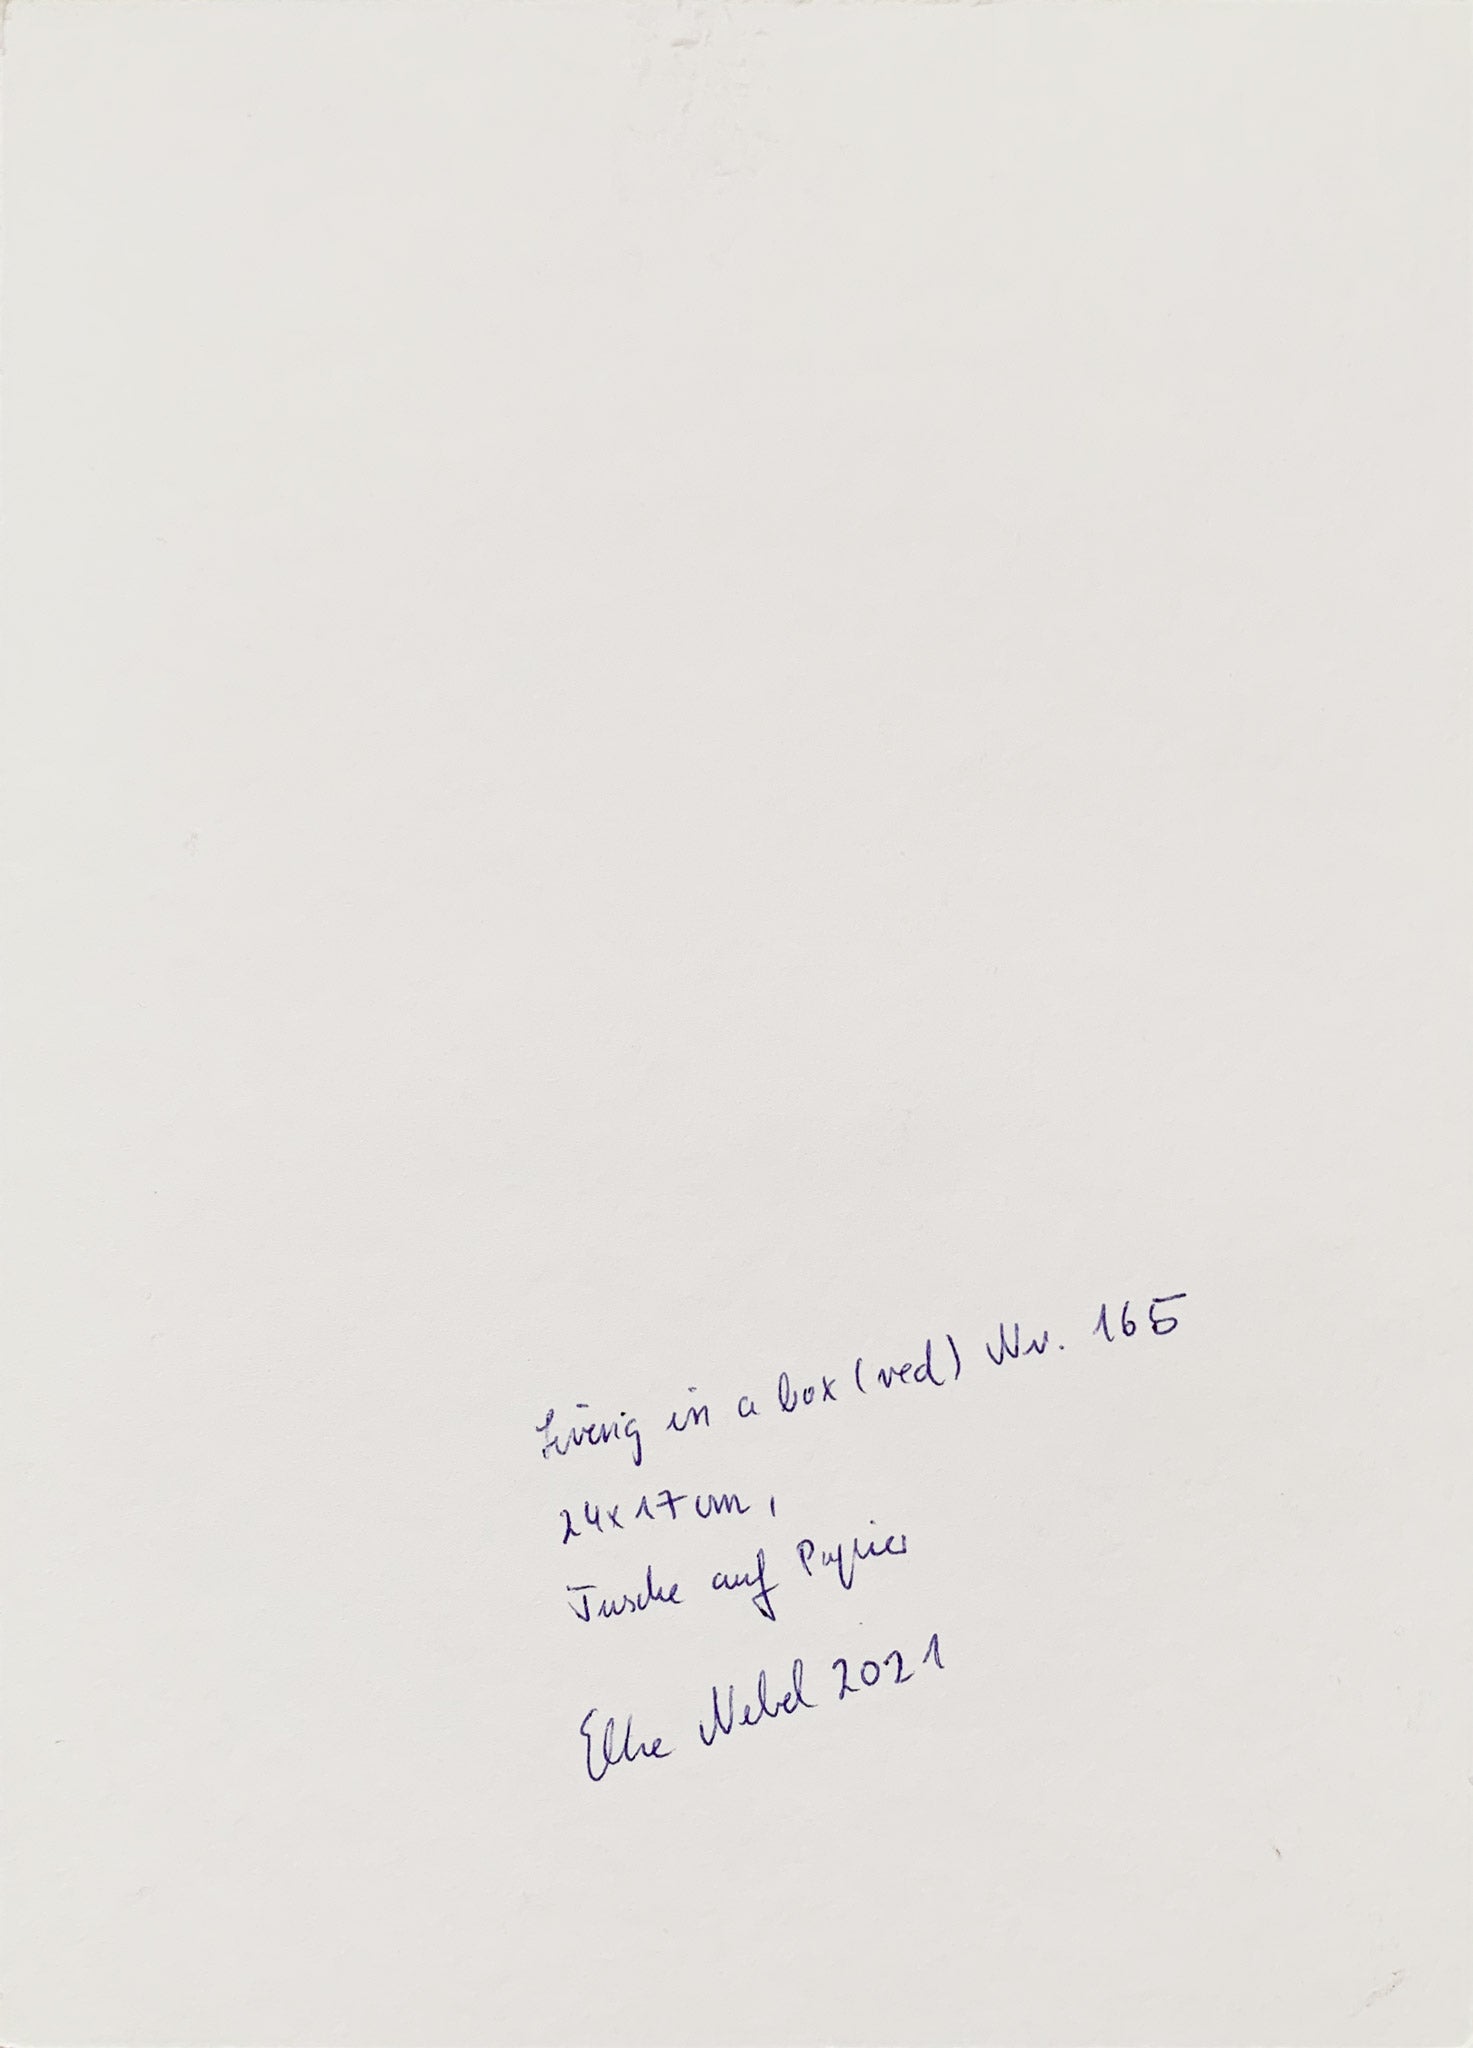 Living in a box (red) Nr. 165
24x17cm,
Tusche auf Papier
Elke Nebel 2021